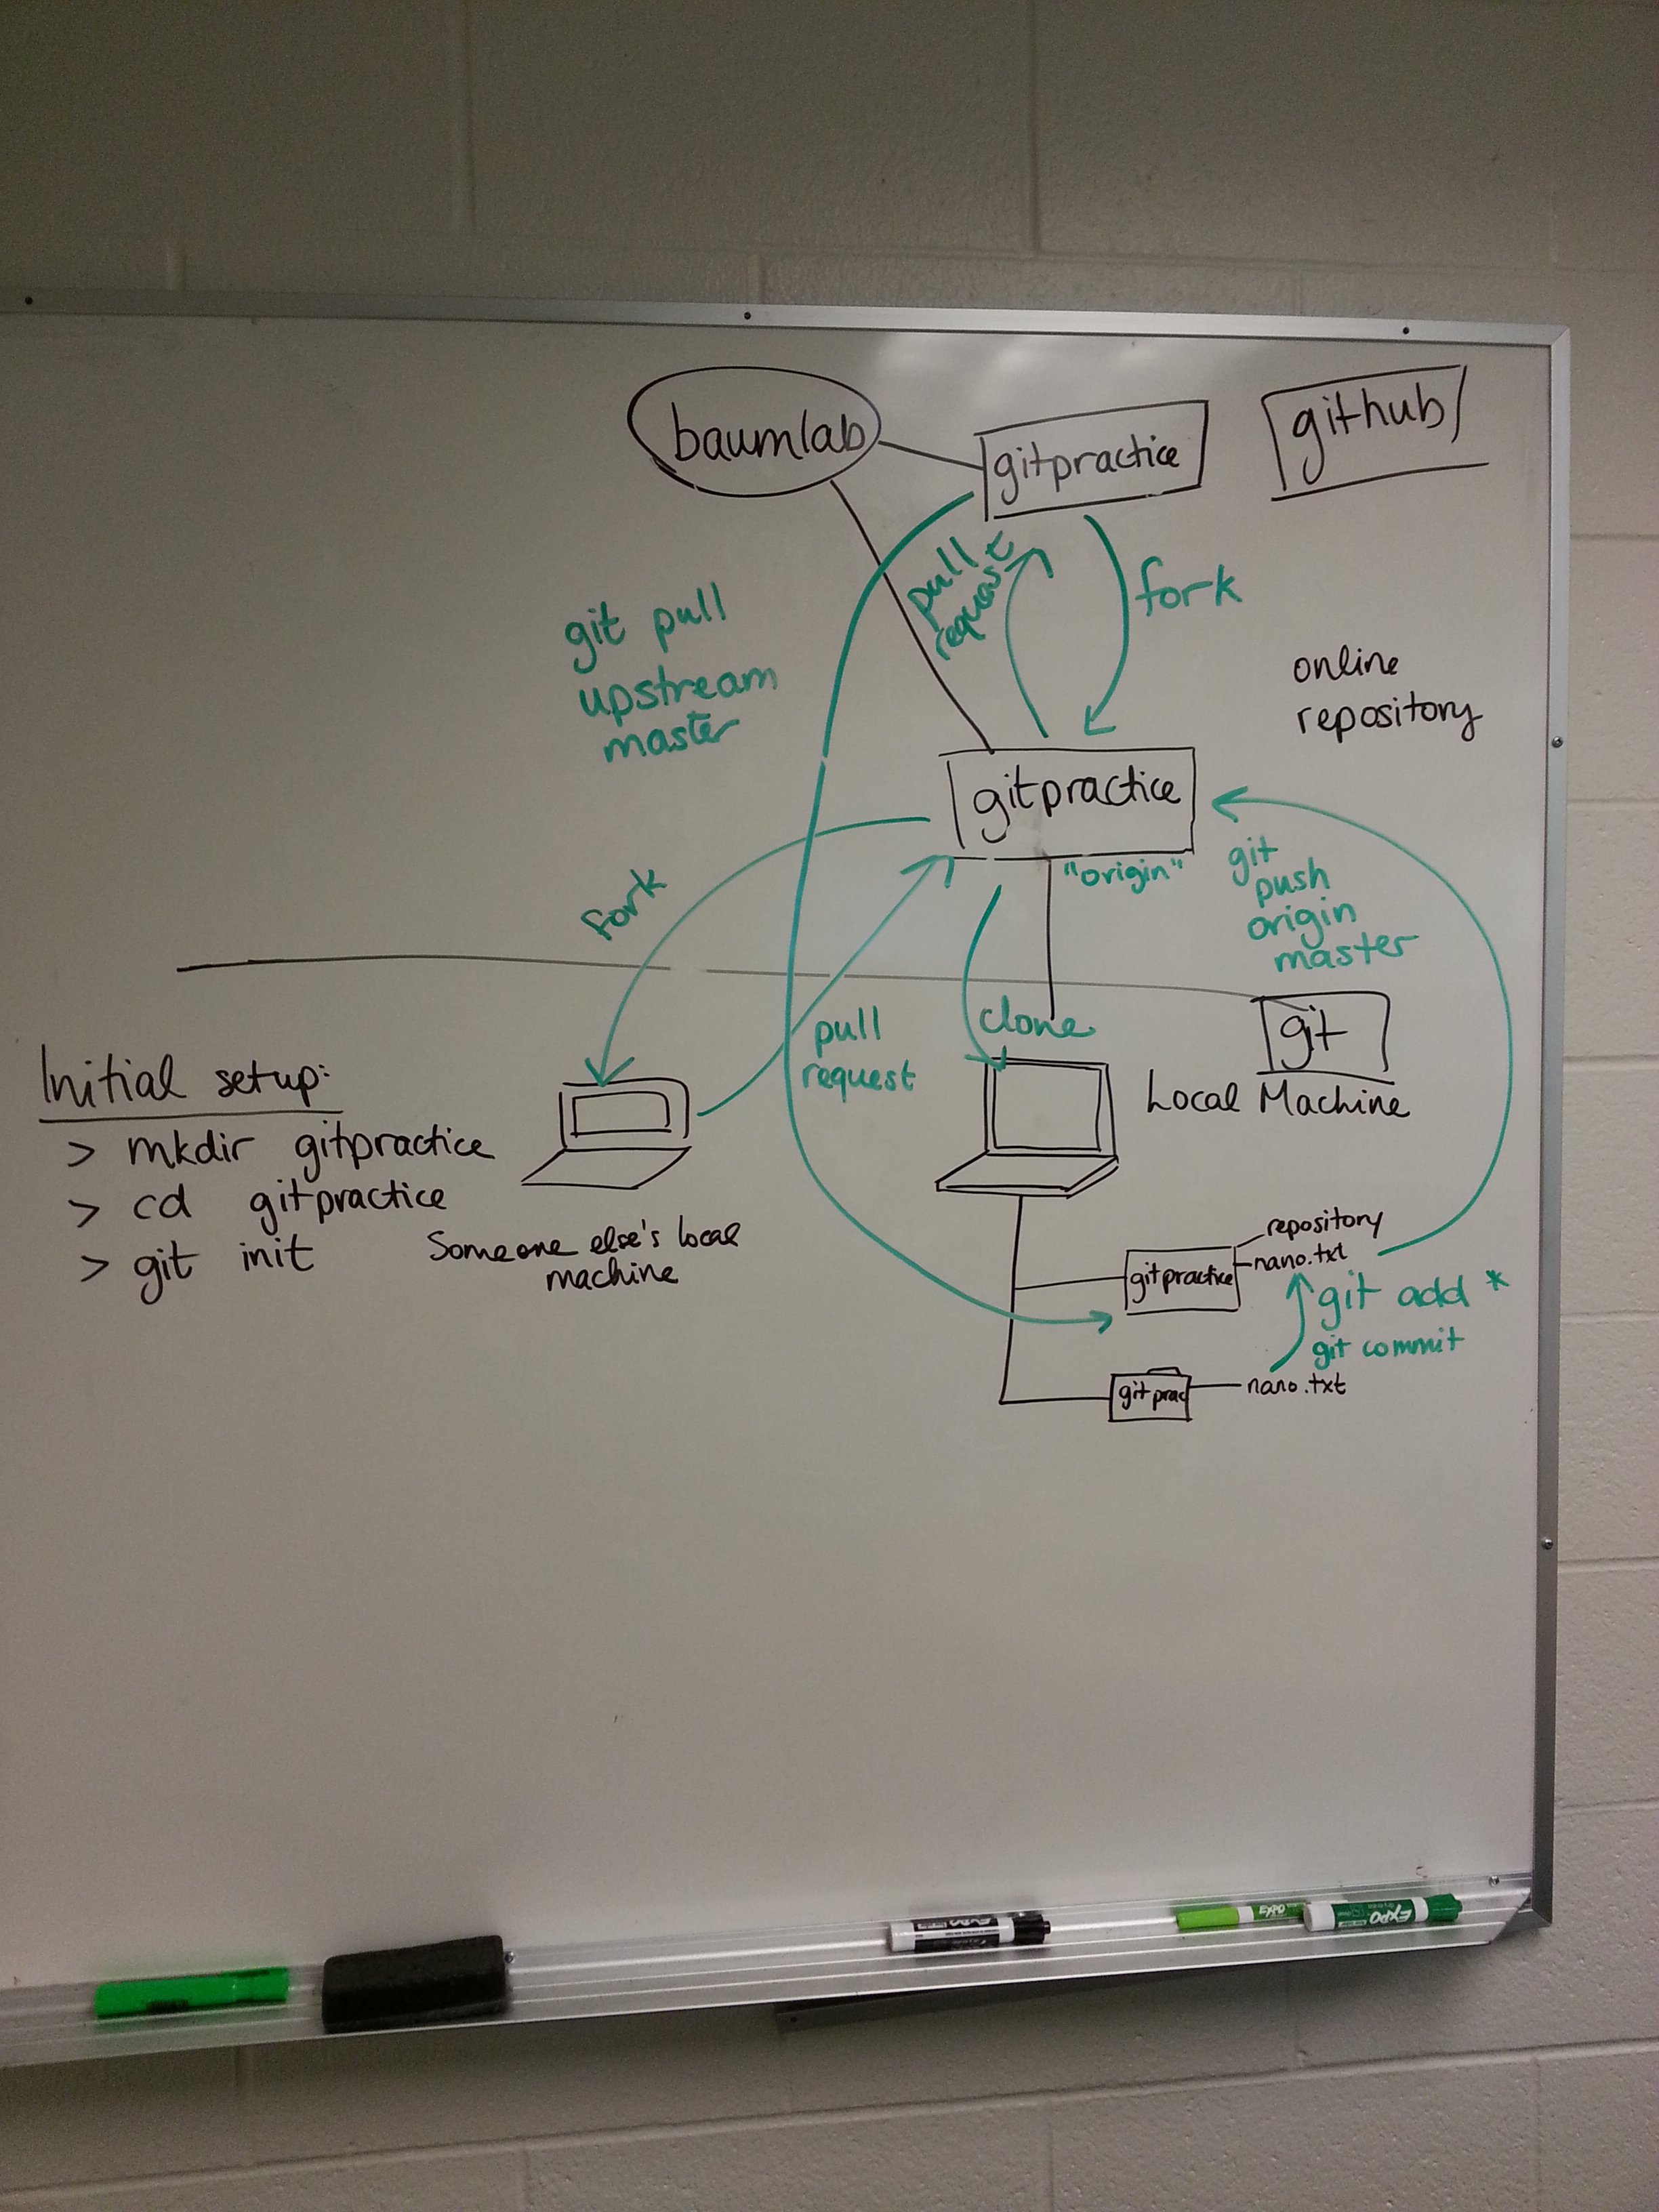 baumlab
gitpractice
github
pull
request
fork
git pull
upstream
master
online
repository
gitpractice
"origin"
git
push
origin
master
fork
clone
git
pull
request
Local Machine
Initial setup:
> mkdir gitpractice
> cd gitpractice
> git init
Someone else's local
machine
repository
gitpractice
nano.txt
git add *
git commit
gitprac
nano.txt
EXPO
EXPO
EXPO